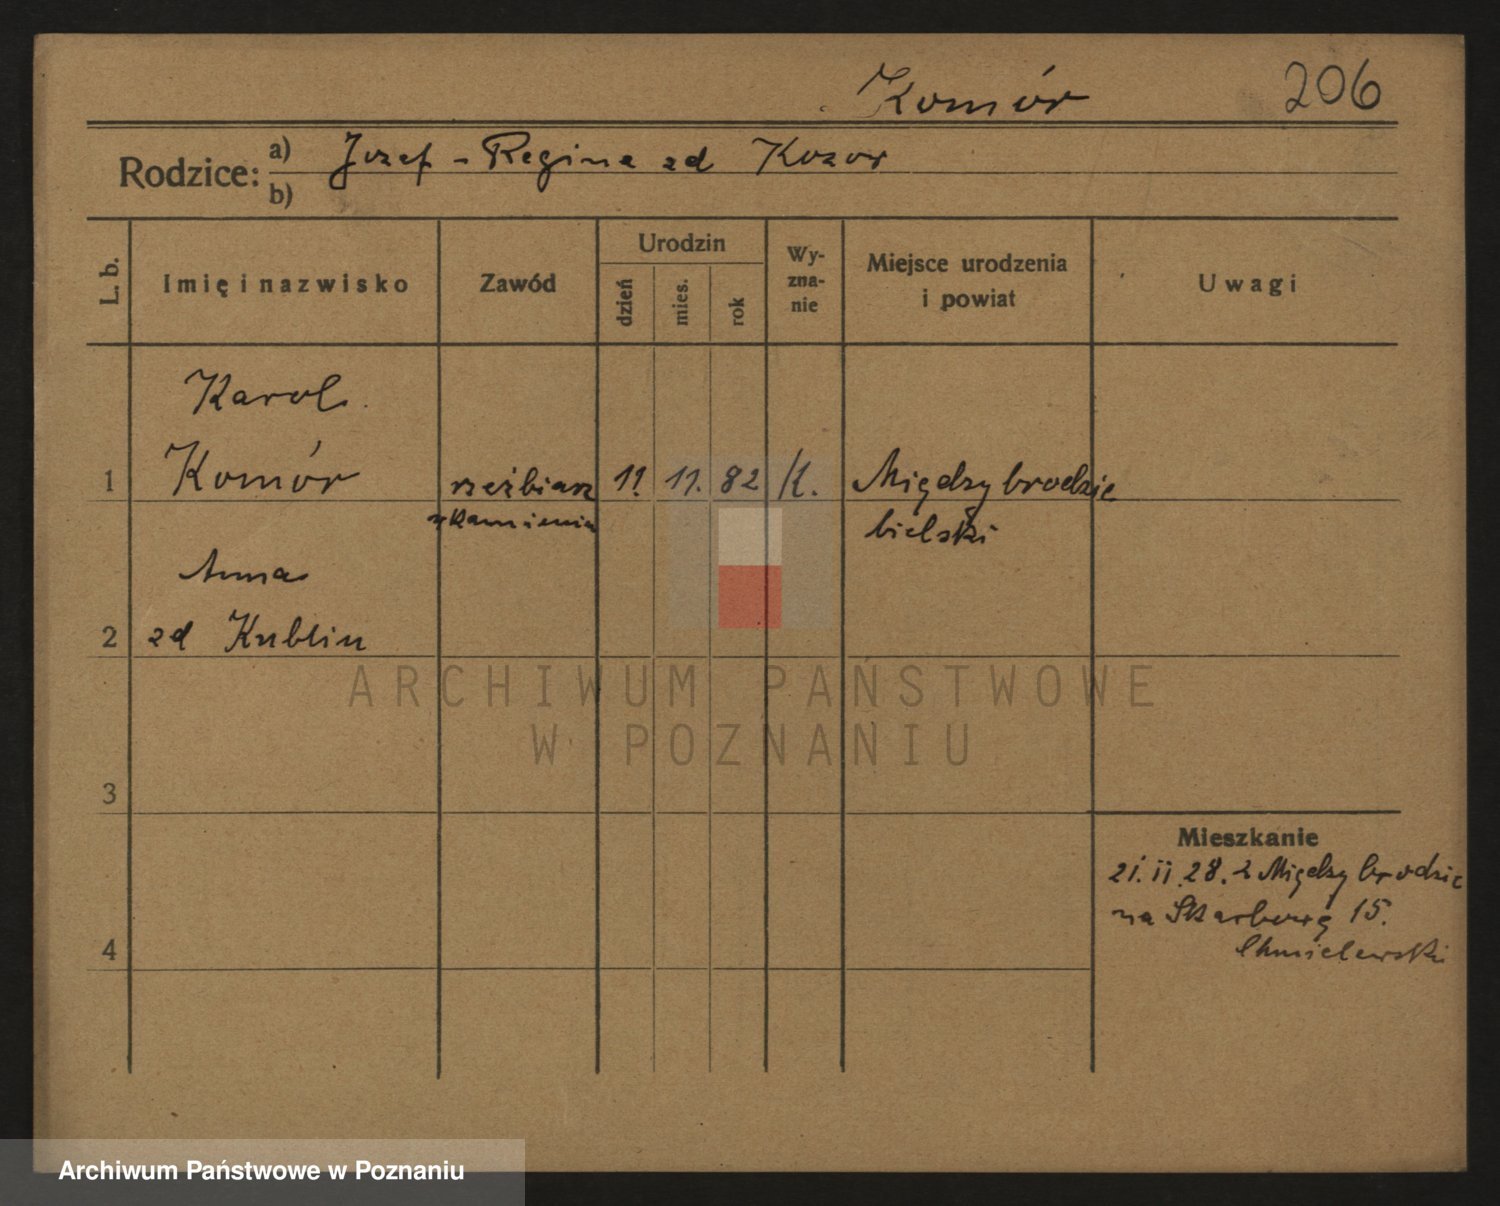 Komór 206
Rodzice: a) Jozef - Regina zd Kozor
b)
L. b. Imię i nazwisko Zawód Urodzin dzień mies. rok Wy-zna-nie Miejsce urodzenia i powiat Uwagi
Karol
1 Komór rzeźbiarz 11. 11. 82 K. Międzybrodzie
w kamieniu bielski
Anna
2 zd Kublin
ARCHIWUM PAŃSTWOWE
W POZNANIU
3
Mieszkanie
21. II. 28. z Międzybrodzie
na Skarbową 15.
4 Chmielewski
Archiwum Państwowe w Poznaniu